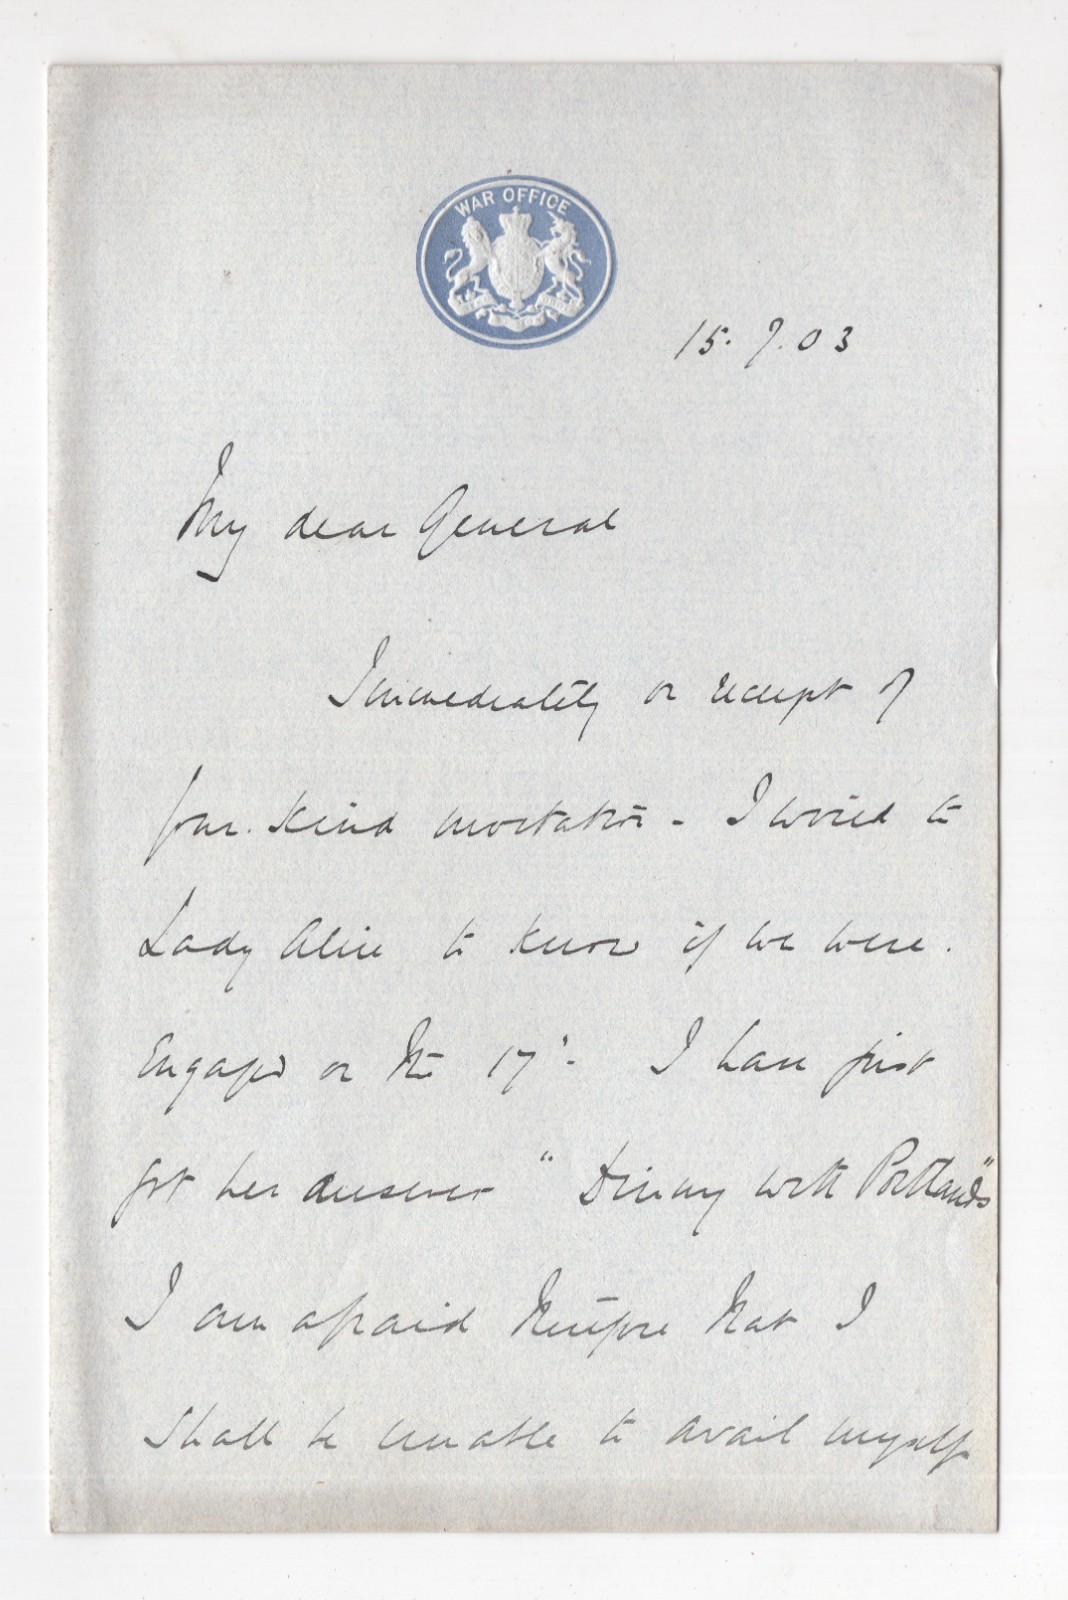 WAR OFFICE
15. 7. 03
My dear General
Immediately on receipt of
your kind invitation - I wired to
Lady Alice to know if we were
engaged on the 17th - I have just
got her answer "Dining with Portlands"
I am afraid therefore that I
shall be unable to avail myself